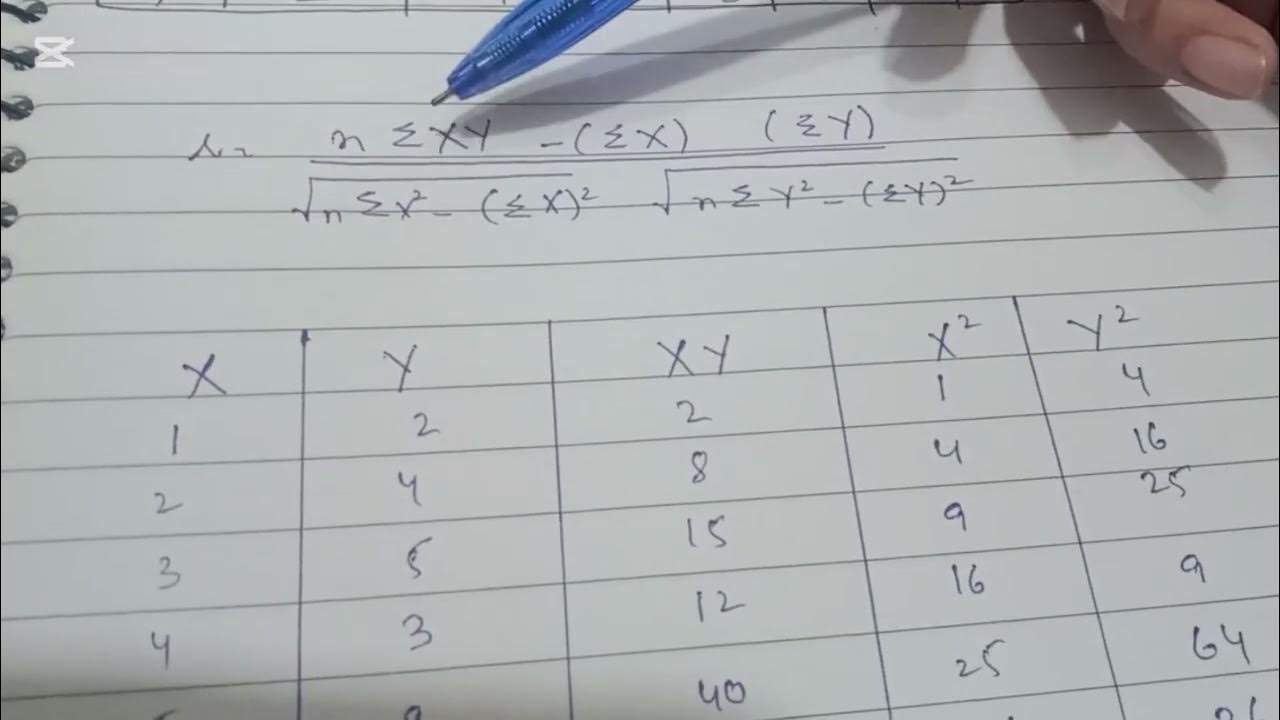 r = n Σ XY - (Σ X) (Σ Y)
√n Σ X² - (Σ X)² √n Σ Y² - (Σ Y)²
X Y XY X² Y²
1 2 2 1 4
2 4 8 4 16
3 5 15 9 25
4 3 12 16 9
40 25 64